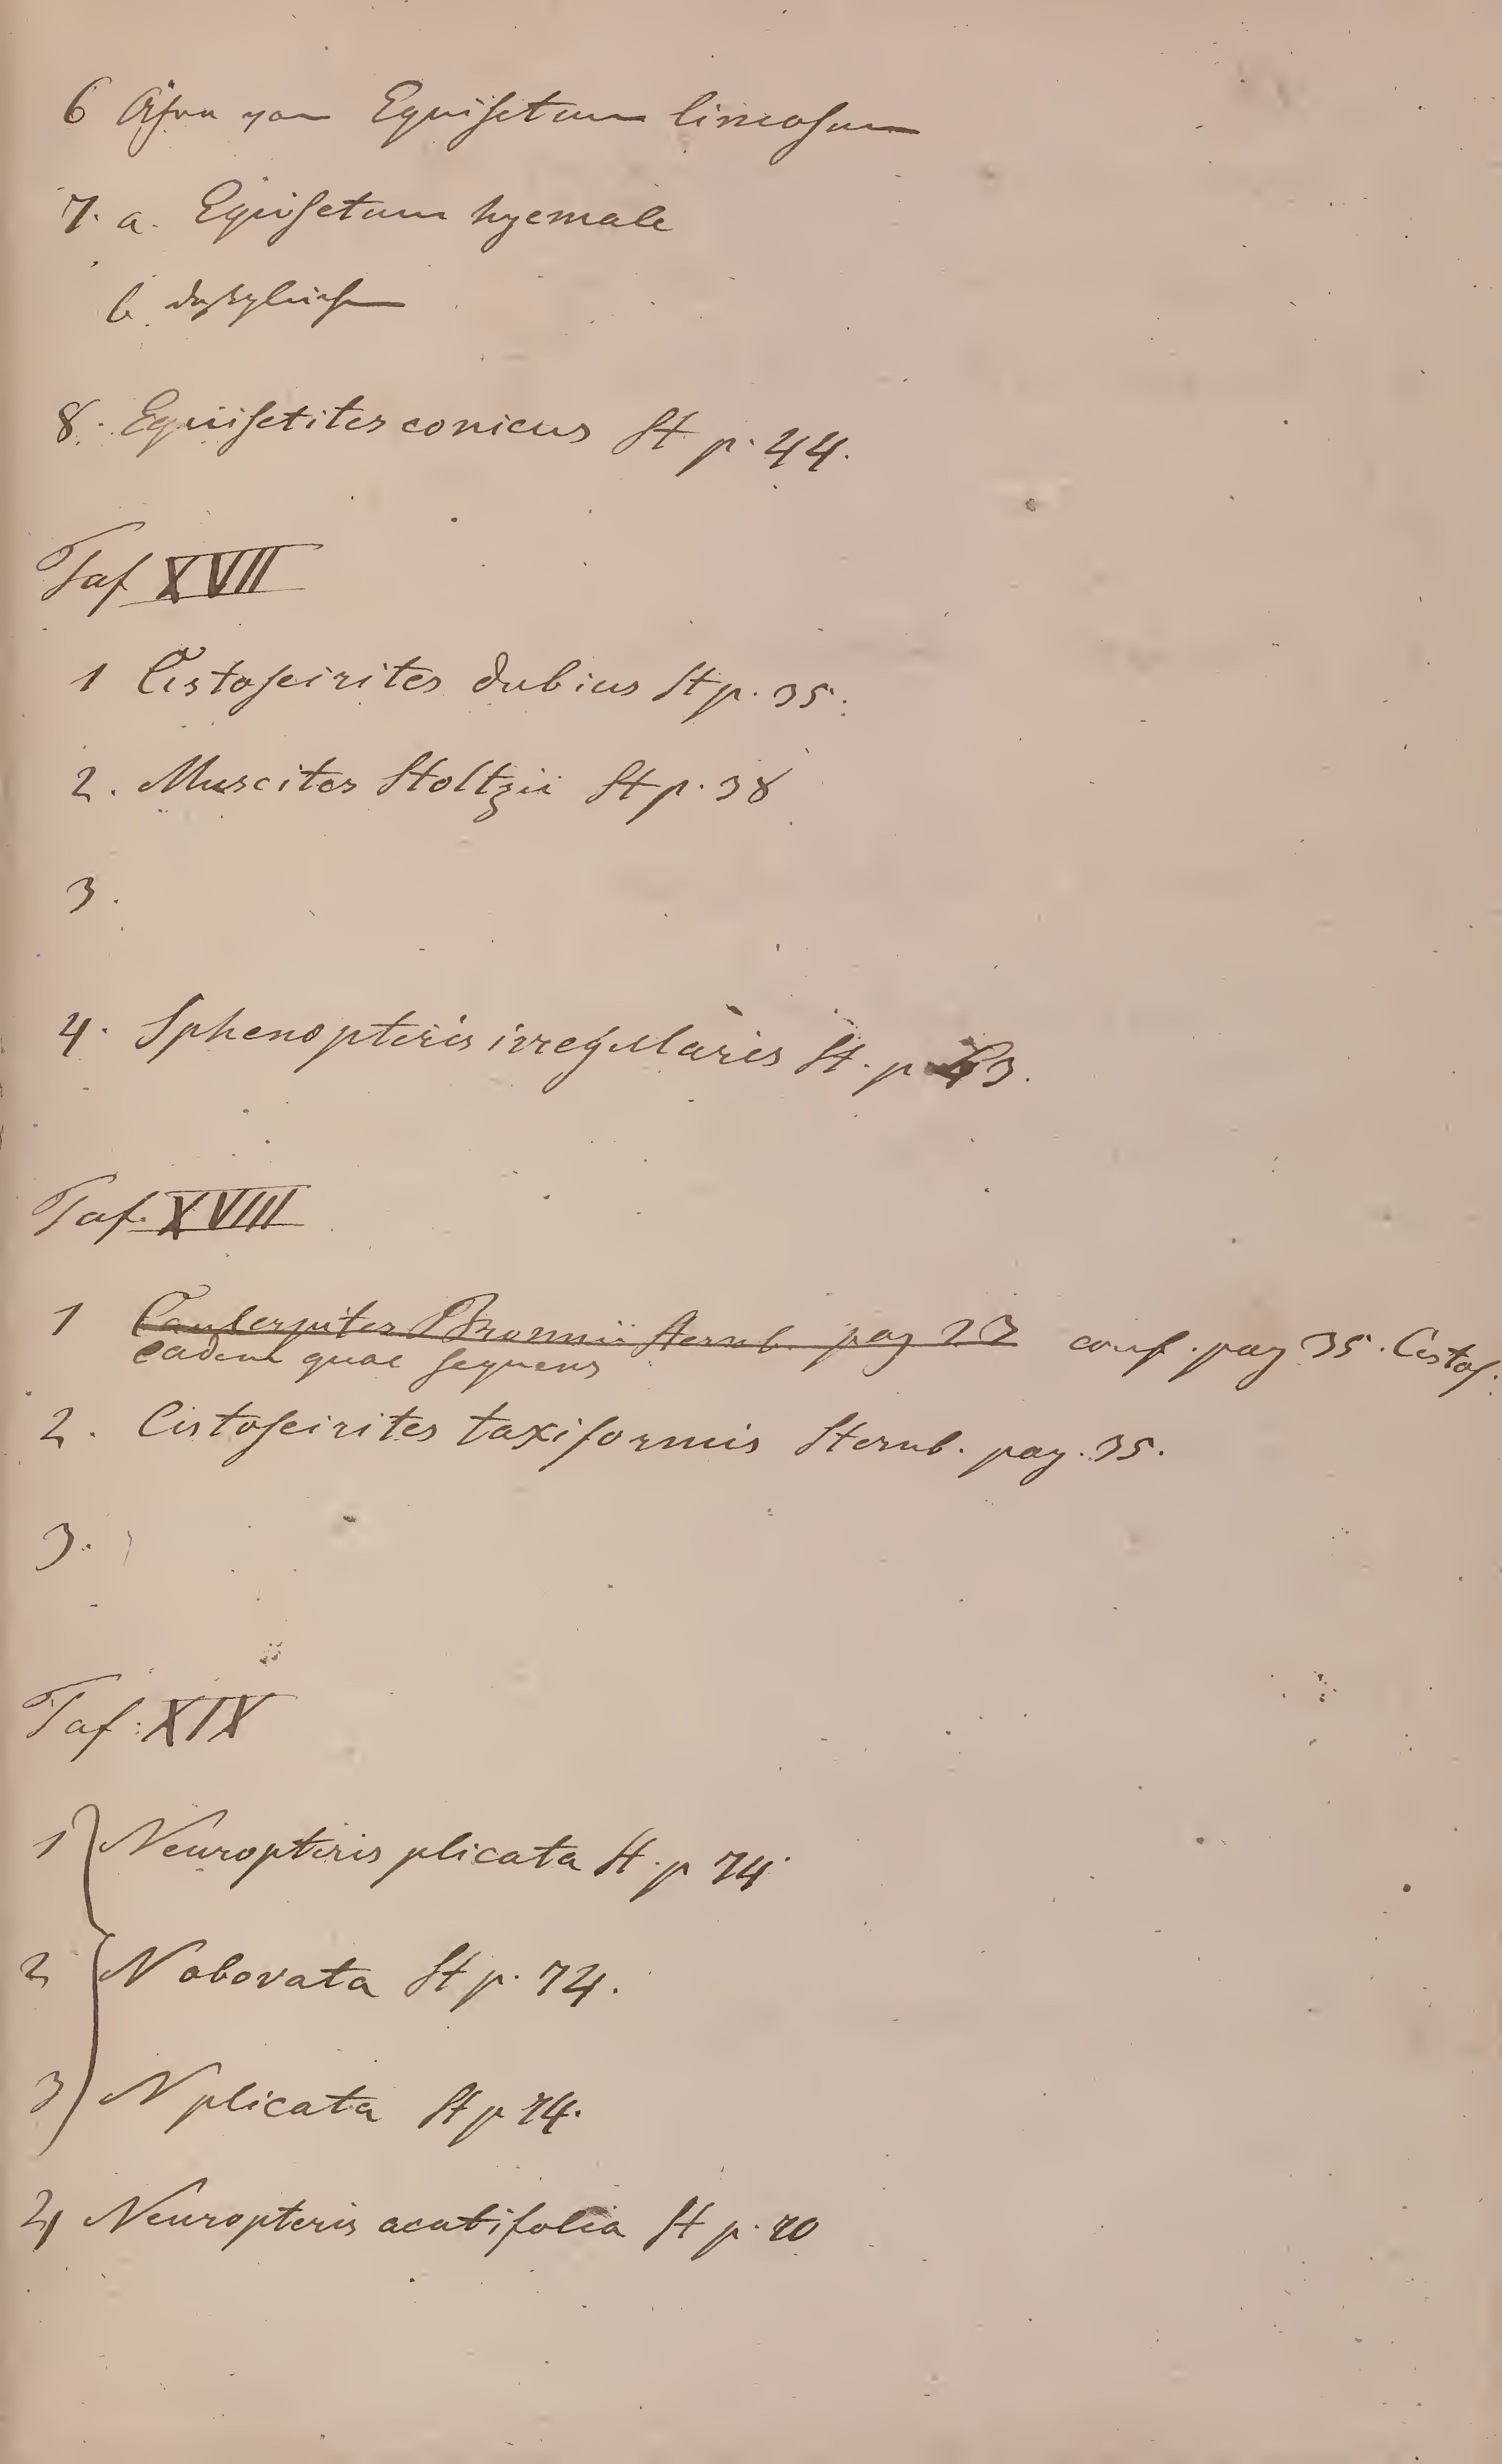 6 Ähren von Equisetum limosum
7. a. Equisetum hyemale
b desgleichen
8. Equisetites conicus St p. 44.
Taf XVII
1 Cistoseirites dubius St p. 35.
2. Muscites Stoltzii St p. 38
3.
4. Sphenopteris irregularis St. p 63.
Taf. XVIII
1 Caulerpites Bronnii Sternb. pag 23 conf. pag 35. Cistos.
eadem quae sequens
2. Cistoseirites taxiformis Sternb. pag. 35.
3.
Taf. XIX
1 Neuropteris plicata St. p 74
2 N obovata St p. 74.
3 N plicata St p 74.
4 Neuropteris acutifolia St p. 70